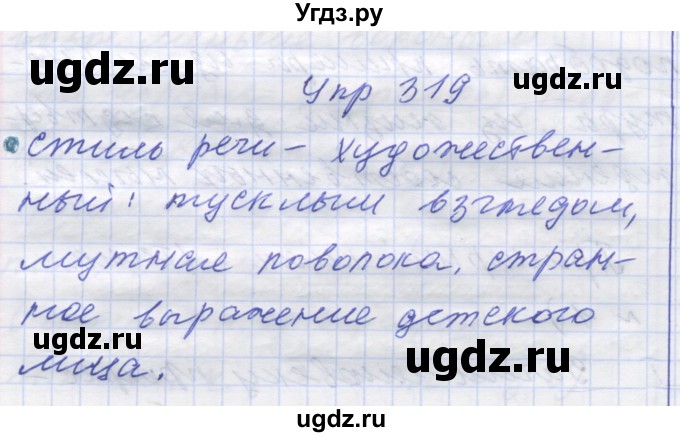 Угдз.ру
ugdz.ru
ugdz.ru
Упр 319
стиль речи - художествен-
ный: тусклым взглядом,
мутная поволока, стран-
ное выражение детского
лица.
ugdz.ru
ugdz.ru
ugdz.ru